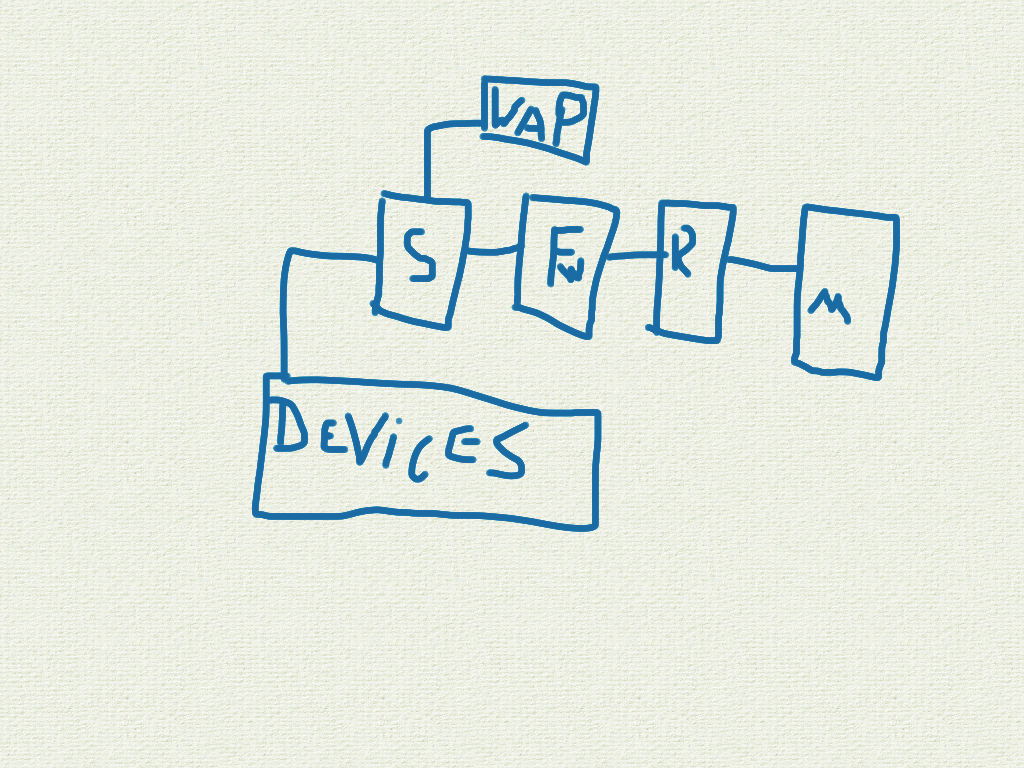 WAP
S
FW
R
M
DEViCES